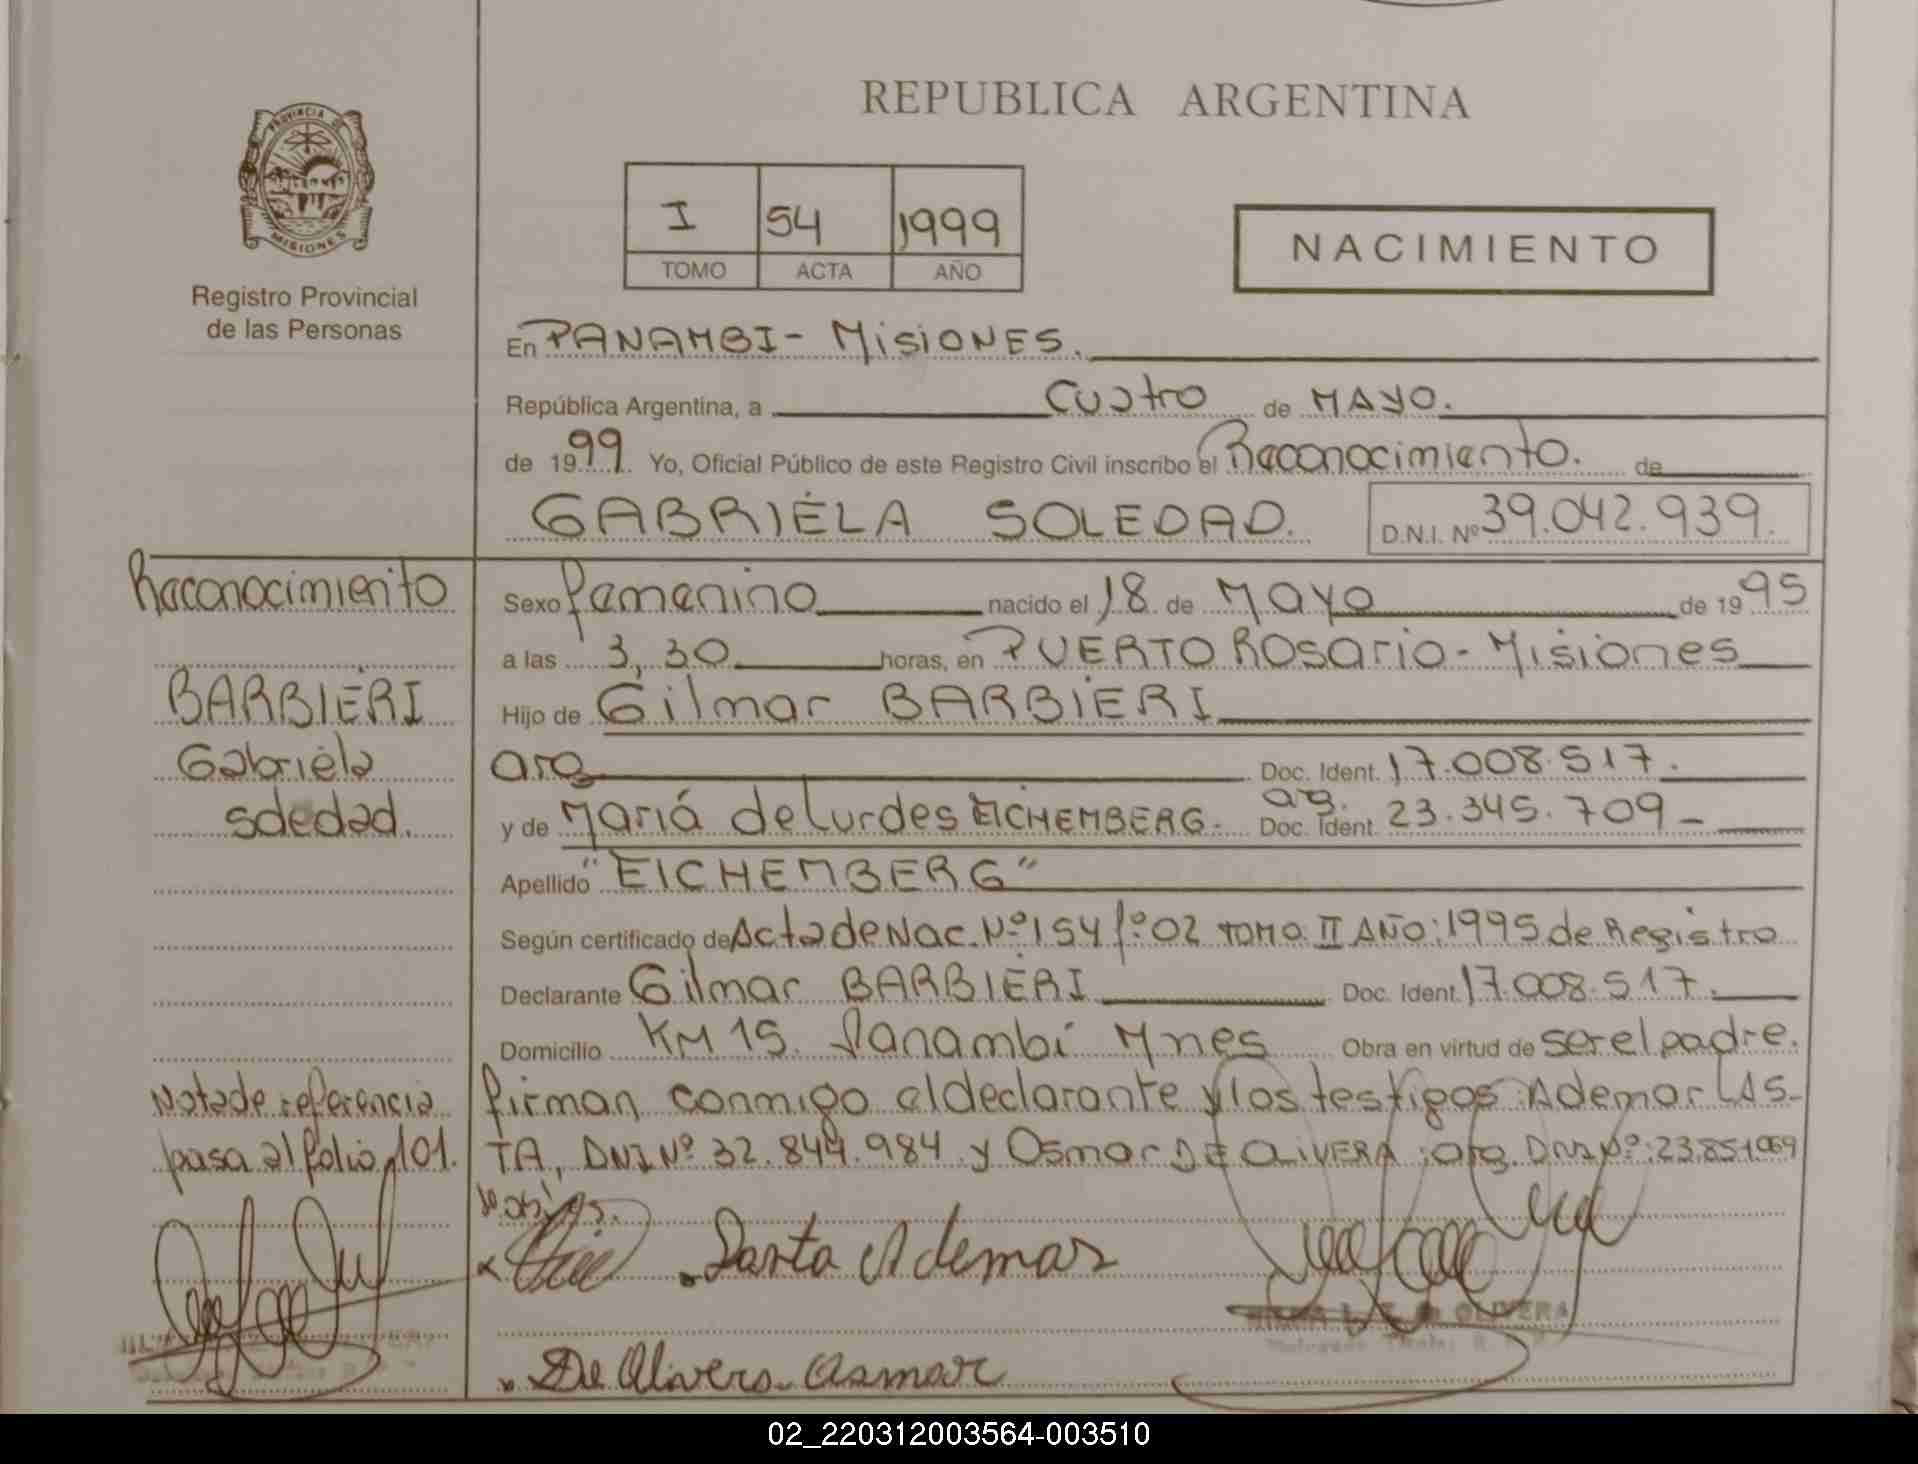 REPUBLICA ARGENTINA
PROVINCIA DE
MISIONES
Registro Provincial
de las Personas
I 54 1999
TOMO ACTA AÑO
NACIMIENTO
En PANAMBI - Misiones.
República Argentina, a Cuatro de MAYO.
de 1999. Yo, Oficial Público de este Registro Civil inscribo el Reconocimiento. de
GABRIELA SOLEDAD. D.N.I. Nº 39.042.939.
Reconocimiento
BARBIERI
Gabriela
soledad.
Sexo femenino nacido el 18 de Mayo de 1995
a las 3,30 horas, en PUERTO ROSARIO - Misiones
Hijo de Gilmar BARBIERI
arg Doc. Ident. 17.008.517.
y de Mariá de Lurdes EICHEMBERG. arg. Doc. Ident. 23.345.709 -
Apellido "EICHEMBERG"
Según certificado de Acta de Nac. Nº 154 fº 02 TOMO II AÑO: 1995 de Registro
Declarante Gilmar BARBIERI Doc. Ident. 17.008.517.
Domicilio KM 15. Panambí Mnes Obra en virtud de ser el padre.
Nota de referencia
pasa al folio 101.
firman conmigo el declarante y los testigos Ademar LAS-
TA, DNI Nº 32.844.984 y Osmar DE OLIVERA; arg. DNI Nº: 23.851.069
Ademar
De Olivera Osmar
OLIVERA
02_220312003564-003510